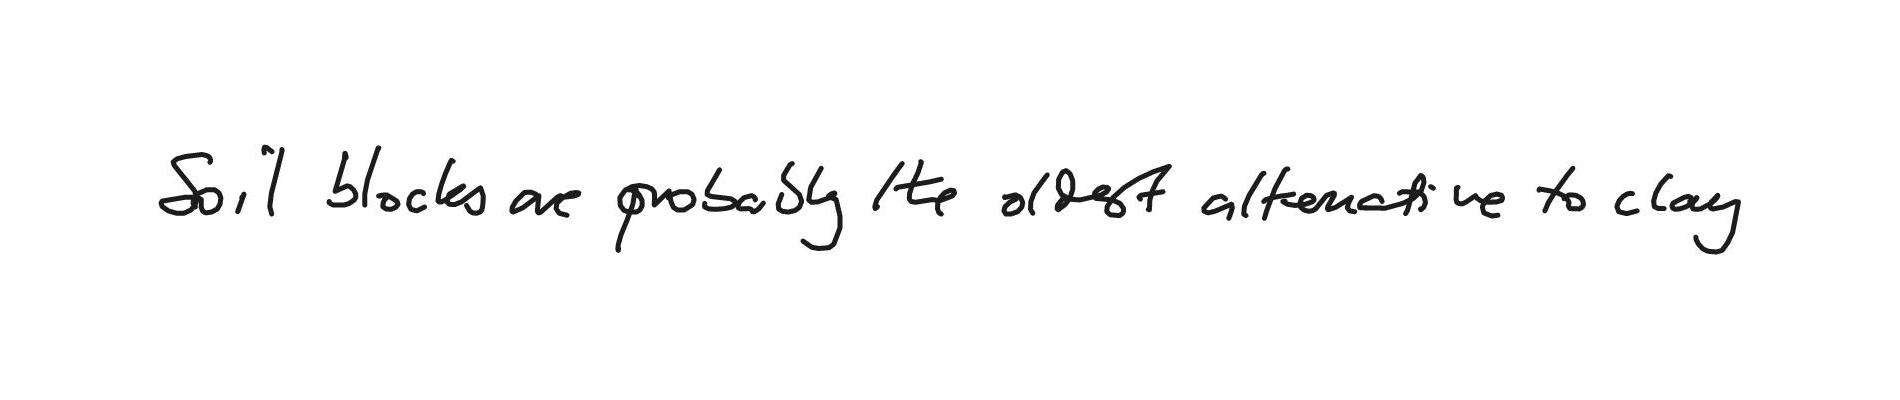 Soil blocks are probably the oldest alternative to clay